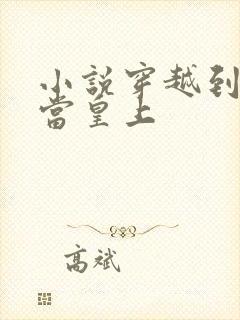 小説穿越到
當皇上
高斌